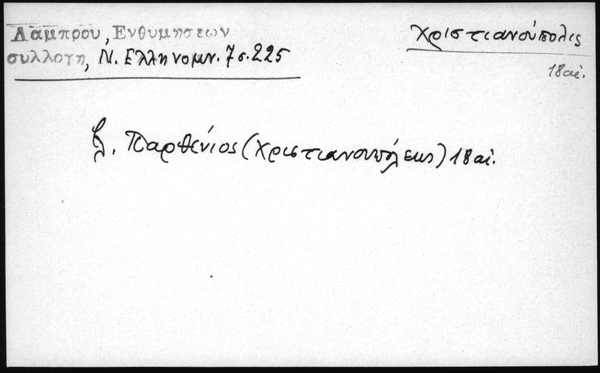 Λάμπρου, Ενθυμησεων
συλλογη, Ν. Ελληνομν. 7 σ. 225
Χριστιανούπολις
18 αἰ.
βλ. Παρθένιος (Χριστιανουπόλεως) 18 αἰ.